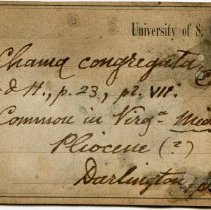 University of S.
Chama congregata
& H., p. 23, pl. VII.
Common in Virgª Mio
Pliocene (?)
Darlington